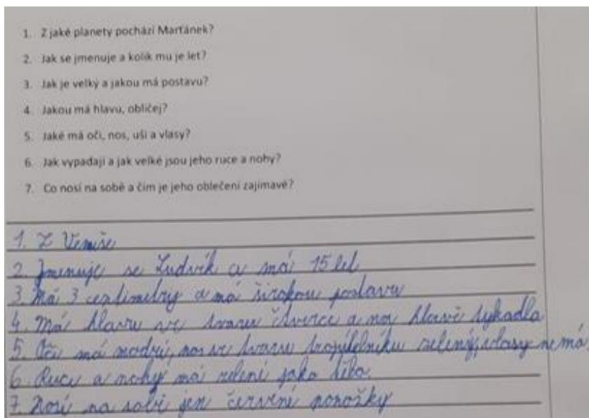 1. Z jaké planety pochází Marťánek?
2. Jak se jmenuje a kolik mu je let?
3. Jak je velký a jakou má postavu?
4. Jakou má hlavu, obličej?
5. Jaké má oči, nos, uši a vlasy?
6. Jak vypadají a jak velké jsou jeho ruce a nohy?
7. Co nosí na sobě a čím je jeho oblečení zajímavé?
1. Z Venuše
2. Jmenuje se Ludvík a má 15 let
3. Má 3 centimetry a má širokou postavu
4. Má hlavu ve tvaru čtverce a na hlavě tykadla
5. Oči má modrý, nos ve tvaru trojúhelníku zelený, vlasy nemá
6. Ruce a nohy má zelené jako tělo
7. Nosí na sobě jen červené ponožky